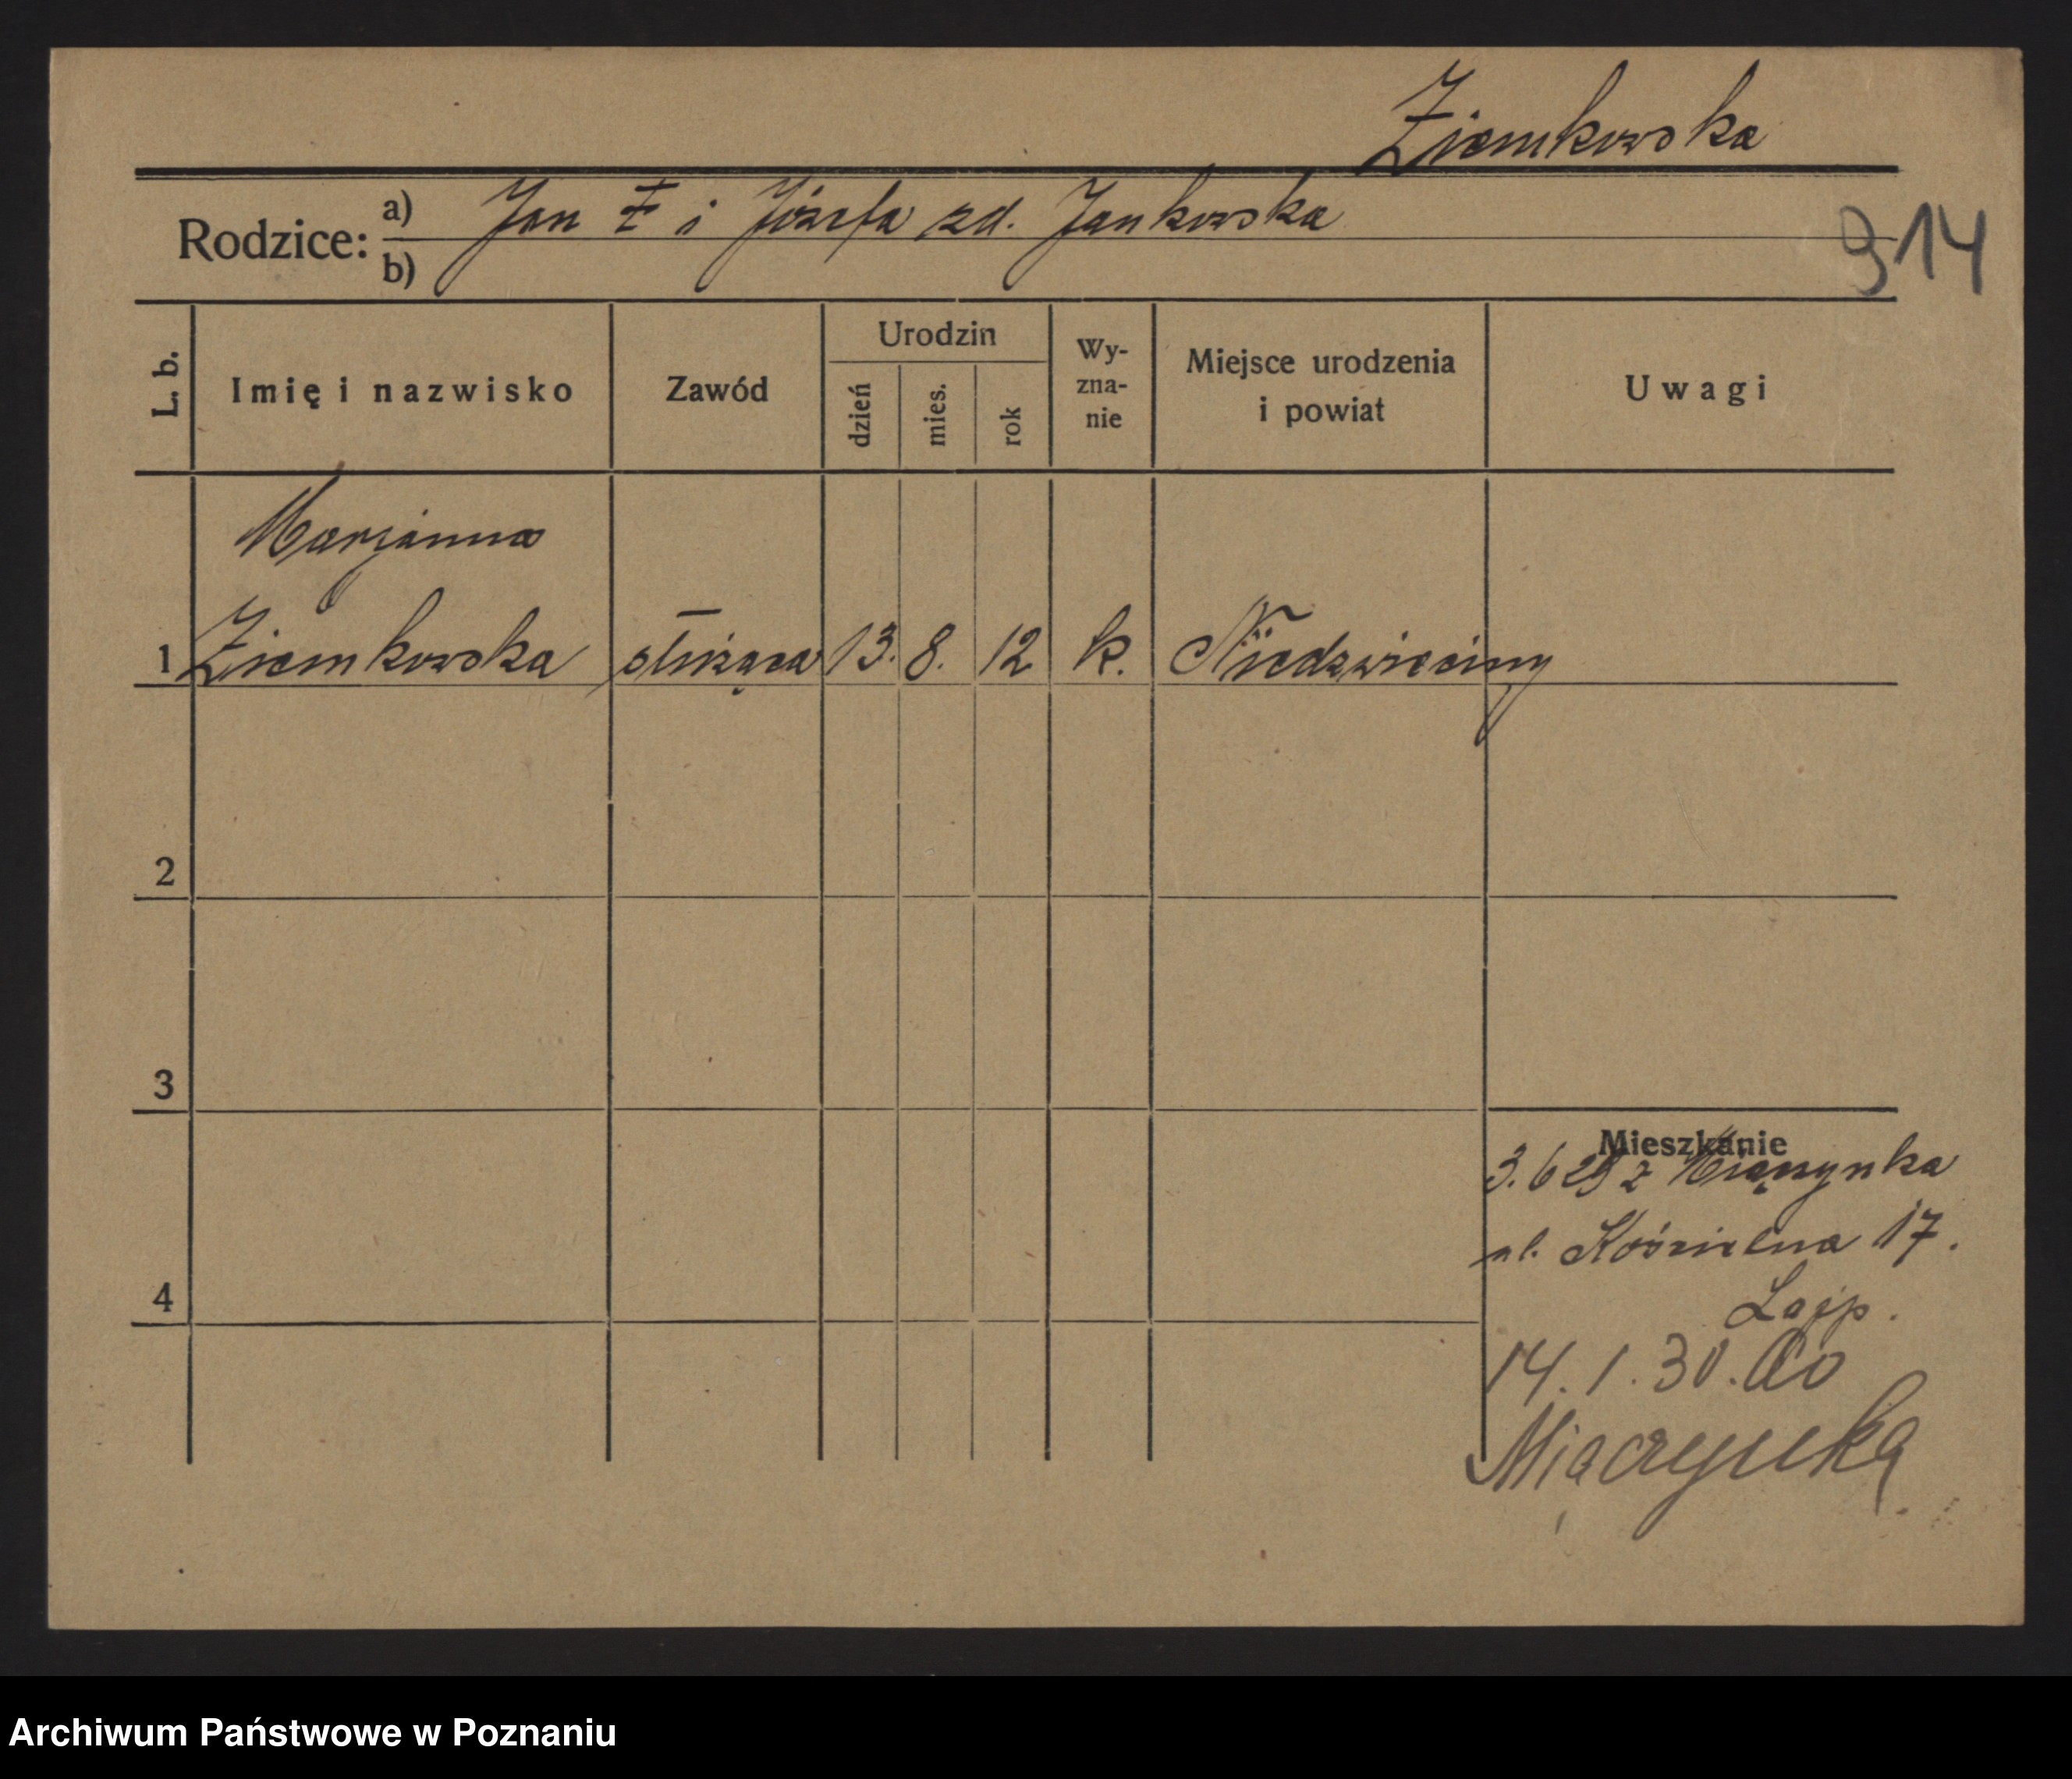 Ziemkowska
Rodzice: a) Jan Z i Józefa zd. Jankowska
b)
914
L. b.
Imię i nazwisko
Zawód
Urodzin
dzień
mies.
rok
Wy-
zna-
nie
Miejsce urodzenia
i powiat
Uwagi
Marjanna
1 Ziemkowska służąca 13. 8. 12 k. Niedzwieciny
2
3
4
Mieszkanie
3.6 29 z Miączynka
ul. Kościelna 17.
Lajp.
14.1.30. do
Miączynka
Archiwum Państwowe w Poznaniu